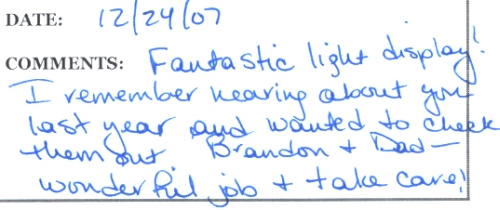 DATE: 12/24/07
COMMENTS: Fantastic light display!
I remember hearing about you
last year and wanted to check
them out Brandon + Dad—
wonderful job + take care!